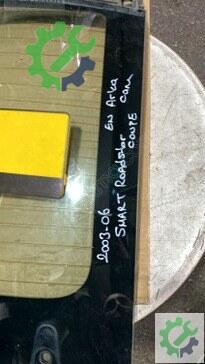 EN Arka
cam
2003-06
SMART Roadster
COUPE